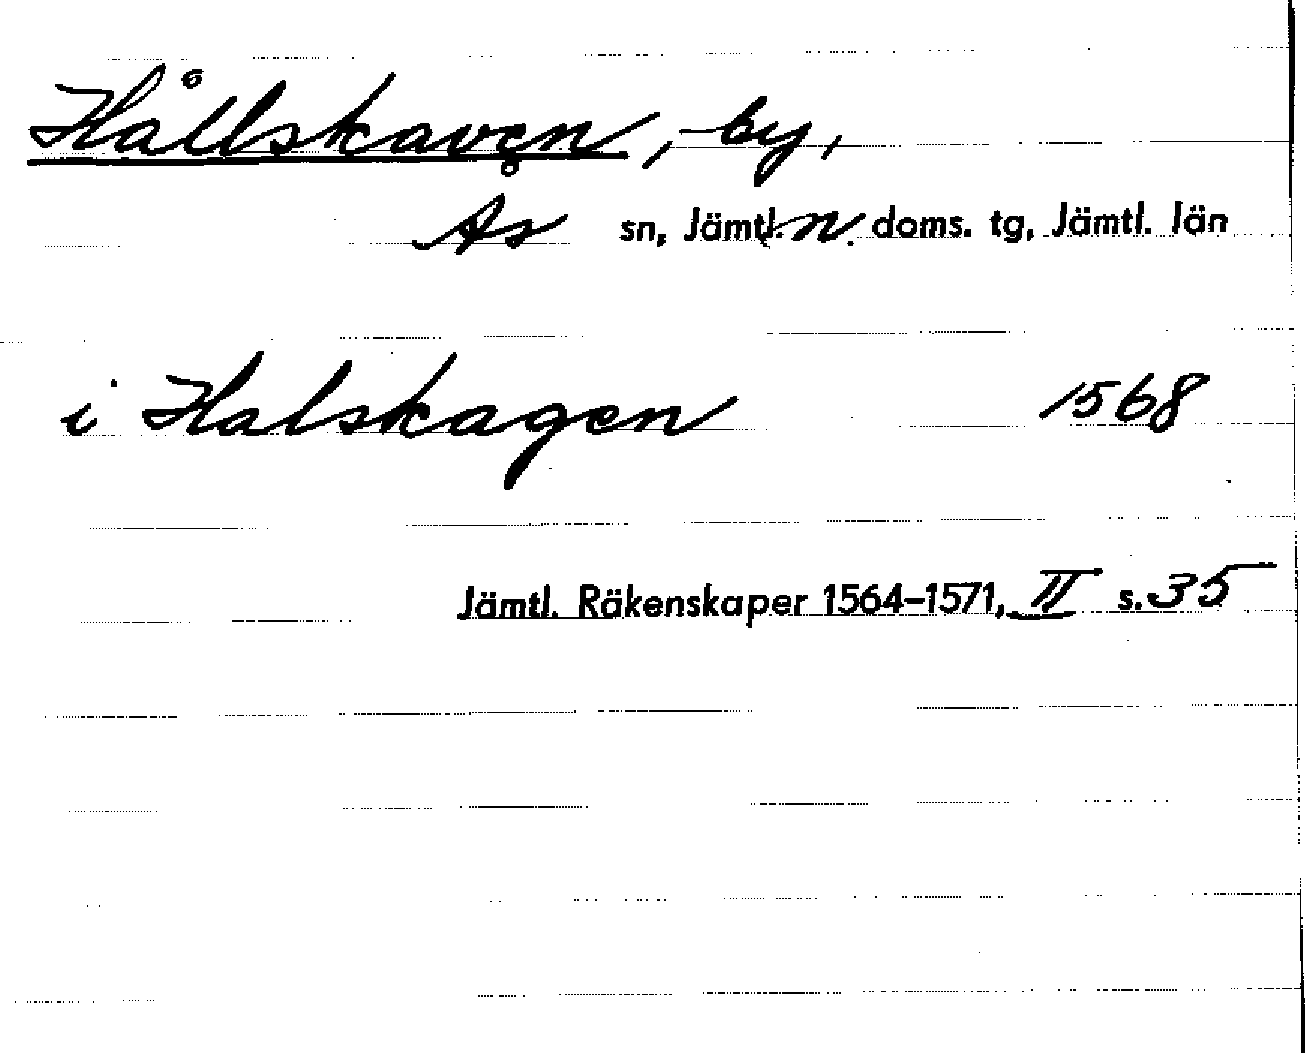 Hållskaven, by,
Ås sn, Jämtl. n. doms. tg, Jämtl. län
i Halskagen 1568
Jämtl. Räkenskaper 1564–1571, II s. 35